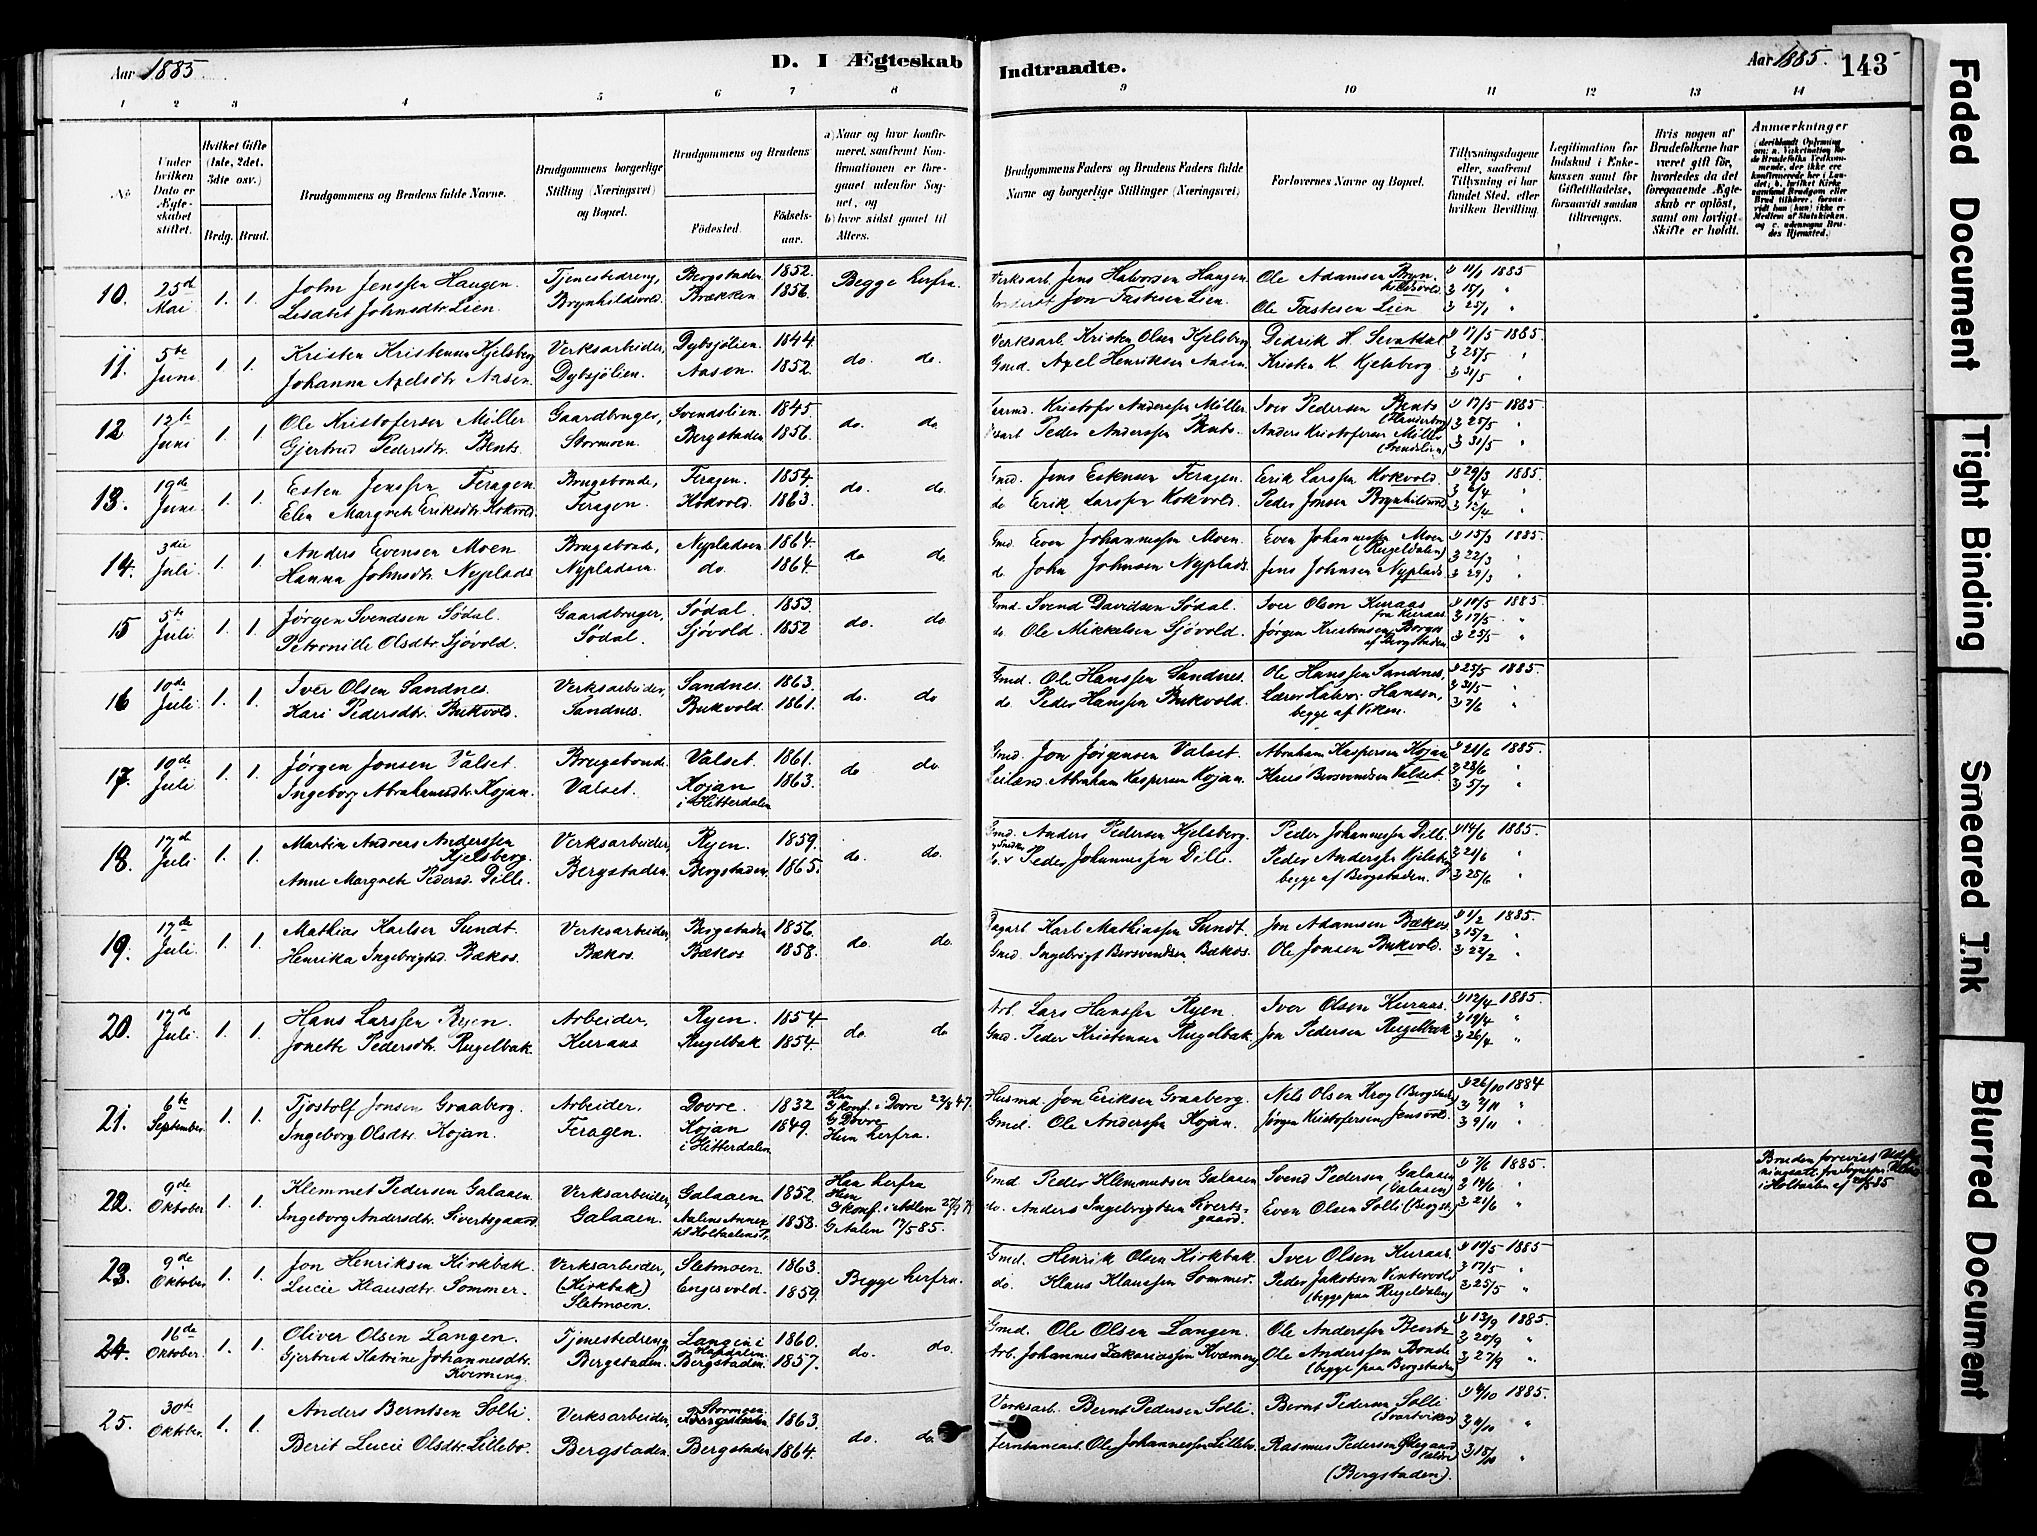 Aar 1885.
D. I Ægteskab
Indtraadte.
Aar 1885.
143
1 2 3 4 5 6 7 8 9 10 11 12 13 14
No
Under hvilken Dato er Ægteskabet stiftet.
Hvilket Gifte (1ste, 2det, 3die osv.)
Brdg. Brud.
Brudgommens og Brudens fulde Navne.
Brudgommens borgerlige Stilling (Næringsvei) og Bopæl.
Brudgommens og Brudens
Födested.
Födselsaar.
a) Naar og hvor konfirmeret, saafremt Konfirmationen er foregaaet udenfor Sognet, og
b) hvor sidst gaaet til Alters.
Brudgommens Faders og Brudens Faders fulde Navne og borgerlige Stillinger (Næringsvei)
Forlovernes Navne og Bopæl.
Tillysningsdagene eller, saafremt Tillysning ei har fundet Sted, efter hvilken Bevilling.
Legitimation for Indskud i Enkekassen samt for Giftetilladelse, forsaavidt saadan tiltrænges.
Hvis nogen af Brudefolkene har været gift för, hvorledes da det foregaaende Ægteskab er oplöst, samt om lovligt Skifte er holdt.
Anmærkninger
10. 25de Mai 1. 1. John Jenssen Haugen. Tjenestedreng, Bergstaden 1852. Begge herfra. Verksarb. Jens Halvorsen Haugen. Ole Adamsen Brynhildsvold. 1) 11/1 1885
Lisabet Johnsdtr. Lien. Brynhildsvold. Brækken 1856. Jon Tastesen Lien. Ole Tastesen Lien 2) 15/1 3) 25/1 "
11. 5te Juni 1. 1. Kristen Kristensen Kjelsberg Verksarbeider, Dybsjölien. 1844. do. do. Verksarb. Kristen Olsen Kjelsberg. Didrik H. Sevatdal 1) 17/5 1885
Johanna Axelsdtr. Aasen. Dybsjölien. Aasen. 1852. Gmd. Axel Henriksen Aasen. Kristen K. Kjelsberg. 2) 25/5 3) 31/5 "
12 12te Juni 1. 1. Ole Kristofersen Möller Gaardbruger, Svendslien. 1845. do. do. Kristofer Anderssen Möller. Iver Pedersen Bents 1) 17/5 1885
Gjertrud Pedersdtr. Bents. Stormoen. Bergstaden 1856. Peder Anderssen Bents. Anders Kristofersen Möller (Svendslien) 2) 25/5 3) 31/5 "
13. 19de Juni 1. 1. Esten Jenssen Feragen. Brugsbonde, Feragen. 1854. do. do. Gmd. Jens Estensen Feragen. Erik Larssen Kokvold. 1) 29/3 1885.
Elen Margrete Eriksdtr. Kokvold. Feragen. Kokvold. 1863. do Erik Larssen Kokvold. Peder Jonsen Brynhildsvold 2) 6/4 3) 12/4 "
14. 3die Juli 1. 1. Anders Evensen Moen Brugsbonde, Nypladsen 1864. do do. Gmd. Even Johannessen Moen. Even Johannessen Moen (Rugeldalen) 1) 15/3 1885.
Hanna Johnsdtr. Nyplads Nypladsen. do. 1864. do John Johnsen Nyplads. Jens Johnsen Nyplads 2) 22/3 3) 29/3 "
15 5te Juli. 1. 1. Jørgen Svendsen Sødal. Gaardbruger, Sødal. 1853. do. do Gmd. Svend Davidsen Sødal. Iver Olsen Kuraas fra Kuraas. 1) 10/5 1885.
Petronille Olsdtr. Sjövold. Sødal. Sjövold. 1852 do. Ole Mikkelsen Sjövold. Jørgen Kristensen Borgos af Bergstaden 2) 17/5. 3) 25/5 "
16 10de Juli 1. 1. Iver Olsen Sandnes. Verksarbeider, Sandnes. 1863. do do Gmd. Ole Hanssen Sandnes. Ole Hanssen Sandnes, 1) 25/5 1885.
Kari Pedersdtr. Bukvold. Sandnes. Bukvold. 1861. do. Peder Hanssen Bukvold. Lærer Halvor Hansen, begge af Viken. 2) 31/5 3) 7/6 "
17. 10de Juli 1. 1. Jørgen Jonsen Valset. Brugsbonde Valset. 1861. do do. Gmd. Jon Jørgensen Valset. Abraham Kaspersen Kojan 1) 21/6 1885.
Ingeborg Abrahamsdtr. Kojan. Valset. Kojan i Hitterdalen 1863. Leilænd. Abraham Kaspersen Kojan. Knus Bersvendsen Valset. 2) 28/6 3) 5/7 "
18. 17de Juli 1. 1. Martin Andreas Anderssen Kjelsberg. Verksarbeider, Ryen. 1859. do. do. Gmd. Anders Pedersen Kjelsberg. Peder Johannessen Dille. 1) 14/6 1885.
Anne Margrete Pedersd. Dille. Bergstaden. Bergstaden. 1865. Peder Johannessen Dille. Peder Anderssen Kjelsberg begge af Bergstaden. 2) 21/6 3) 25/6 "
19. 17de Juli. 1. 1. Mathias Karlsen Sundt. Verksarbeider, Bergstaden 1856. do. do. Dagarb. Karl Mathiassen Sundt. Jon Adamsen Bækos. 1) 1/2 1885.
Henrika Ingebrigtsd. Bækos. Bækos. Bækos 1858. Gmd. Ingebrigt Bersvendsen Bækos. Ole Jonsen Bukvold. 2) 15/2 3) 22/2 "
20. 17de Juli 1. 1. Hans Larssen Ryen. Arbeider, Ryen. 1854. do. do Arb. Lars Hanssen Ryen. Iver Olsen Kuraas. 1) 12/4 1885.
Jonette Pedersdtr. Rugelbak. Kuraas Rugelbak 1854. Gmd. Peder Kristensen Rugelbak. Jon Pedersen Rugelbak 2) 19/4 3) 26/4 "
21. 6te September. 1. 1. Tjostolf Jonsen Graaberg. Arbeider, Dovre. 1832 Han konf. i Dovre 22/8 47. G. Dovre Husmd. Jon Eriksen Graaberg. Nils Olsen Krog (Bergstad) 1) 26/10 1884
Ingeborg Olsdtr. Kojan. Feragen. Kojan i Hitterdalen 1849. Hun herfra. Gmd. Ole Anderssen Kojan. Jørgen Kristofersen Jensvold. 2) 2/11 3) 9/11 "
22. 9de Oktober 1. 1. Klemmet Pedersen Galaaen. Verksarbeider, Galaaen 1852. Han herfra Gmd Peder Klemmetsen Galaaen Svend Pedersen Galaaen (Galaaen) 1) 7/6 1885. Bruden forevist
Ingeborg Andersdtr. Sivertsgaard. Galaaen. Aalens Annex til Holtaalen 1858. Hun konf. i Aalen G. Aalen 17/5 85. do. Anders Ingebrigtsen Sivertsgaard. Even Olsen Solli (Bergst.) 2) 14/6 3) 21/6 " i Holtaalen af
23. 9de Oktober. 1. 1. Jon Henriksen Kirkbak. Verksarbeider, Sletmoen. 1863. Begge herfra. Gmd. Henrik Olsen Kirkbak. Iver Olsen Kuraas. 1) 10/5 1885
Lucie Klausdtr. Sommer. (Kirkbak) Sletmoen. Engesvold. 1859. do. Klaus Klaussen Sommer. Peder Jakobsen Vintervold (begge paa Rugeldalen) 2) 17/5 3) 25/5 "
24. 16de Oktober. 1. 1. Oliver Olsen Langen. Tjenestedreng, Langen i 1860. do. do. Gmd. Ole Olsen Langen. Ole Anderssen Bents 1) 13/9 1885.
Gjertrud Katrine Johannesdtr. Kverning. Bergstaden. Bergstaden. 1857. Arb. Johannes Zakariassen Kværning Ole Anderssen Bonde (begge paa Bergstaden) 2) 20/9 3) 27/9 "
25. 30te Oktober. 1. 1. Anders Berntsen Solli. Verksarbeider, Stormoen 1863. do. do. Verksarb. Bernt Pedersen Solli. Bernt Pedersen Solli (Svartviken) 1) 4/10 1885.
Berit Lucie Olsdtr. Lillebo. Bergstaden. Bergstaden 1864. Jernbanearb. Ole Johannessen Lillebo. Rasmus Pedersen (Bergstaden). 2) 11/10 3) 18/10 "
Faded Document
Tight Binding
Smeared Ink
Blurred Document